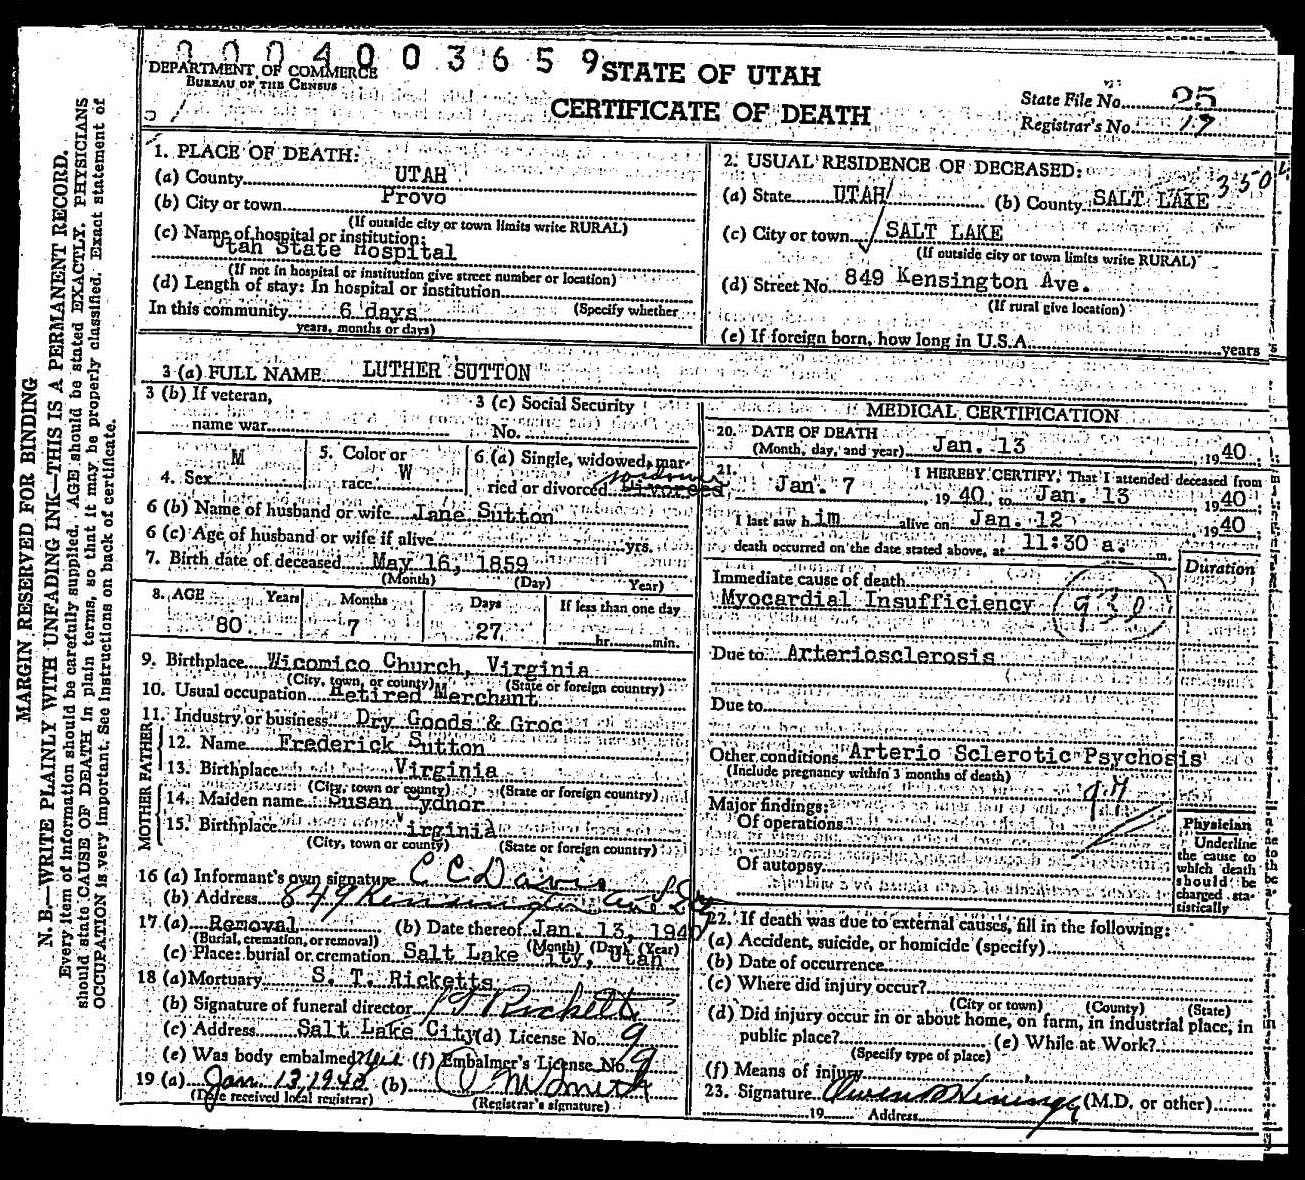 0004003659
DEPARTMENT OF COMMERCE
BUREAU OF THE CENSUS
STATE OF UTAH
CERTIFICATE OF DEATH
State File No. 25
Registrar's No. 17
MARGIN RESERVED FOR BINDING
N. B.—WRITE PLAINLY WITH UNFADING INK—THIS IS A PERMANENT RECORD.
Every item of information should be carefully supplied. AGE should be stated EXACTLY. PHYSICIANS
should state CAUSE OF DEATH in plain terms, so that it may be properly classified. Exact statement of
OCCUPATION is very important. See instructions on back of certificate.
1. PLACE OF DEATH:
(a) County UTAH
(b) City or town Provo
(If outside city or town limits write RURAL)
(c) Name of hospital or institution:
Utah State Hospital
(If not in hospital or institution give street number or location)
(d) Length of stay: In hospital or institution
In this community 6 days (Specify whether
years, months or days)
2. USUAL RESIDENCE OF DECEASED: 350
(a) State UTAH (b) County SALT LAKE
(c) City or town SALT LAKE
(If outside city or town limits write RURAL)
(d) Street No. 849 Kensington Ave.
(If rural give location)
(e) If foreign born, how long in U.S.A. years
3 (a) FULL NAME LUTHER SUTTON
3 (b) If veteran,
name war
3 (c) Social Security
No.
4. Sex M
5. Color or
race W
6 (a) Single, widowed, mar-
ried or divorced Divorced widower
6 (b) Name of husband or wife Jane Sutton
6 (c) Age of husband or wife if alive yrs.
7. Birth date of deceased May 16, 1859
(Month) (Day) Year)
8. AGE Years Months Days If less than one day
80 7 27 hr. min.
9. Birthplace Wicomico Church, Virginia
(City, town, or county) (State or foreign country)
10. Usual occupation Retired Merchant
11. Industry or business Dry Goods & Groc.
FATHER
12. Name Frederick Sutton
13. Birthplace Virginia
(City, town or county) (State or foreign country)
MOTHER
14. Maiden name Susan Sydnor
15. Birthplace Virginia
(City, town or county) (State or foreign country)
16 (a) Informant's own signature C C Davis
(b) Address 849 Kensington Ave
17 (a) Removal (b) Date thereof Jan. 13, 1940
(Burial, cremation, or removal) (Month) (Day) (Year)
(c) Place: burial or cremation Salt Lake City, Utah
18 (a) Mortuary S. T. Ricketts
(b) Signature of funeral director Ricketts
(c) Address Salt Lake City (d) License No. 9
(e) Was body embalmed? Yes (f) Embalmer's License No. 9
19 (a) Jan. 13, 1940 (b)
(Date received local registrar) (Registrar's signature)
MEDICAL CERTIFICATION
20. DATE OF DEATH
(Month, day, and year) Jan. 13, 1940
21. I HEREBY CERTIFY, That I attended deceased from
Jan. 7, 1940, to Jan. 13, 1940
I last saw him alive on Jan. 12, 1940
death occurred on the date stated above, at 11:30 a. m.
Duration
Immediate cause of death
Myocardial Insufficiency 93
Due to Arteriosclerosis
Due to
Other conditions Arterio Sclerotic Psychosis
(Include pregnancy within 3 months of death)
Major findings:
Of operations
Of autopsy
Physician
Underline
the cause to
which death
should be
charged sta-
tistically
22. If death was due to external causes, fill in the following:
(a) Accident, suicide, or homicide (specify)
(b) Date of occurrence
(c) Where did injury occur?
(City or town) (County) (State)
(d) Did injury occur in or about home, on farm, in industrial place, in
public place? (e) While at Work?
(Specify type of place)
(f) Means of injury
23. Signature Owen (M.D. or other)
19 Address